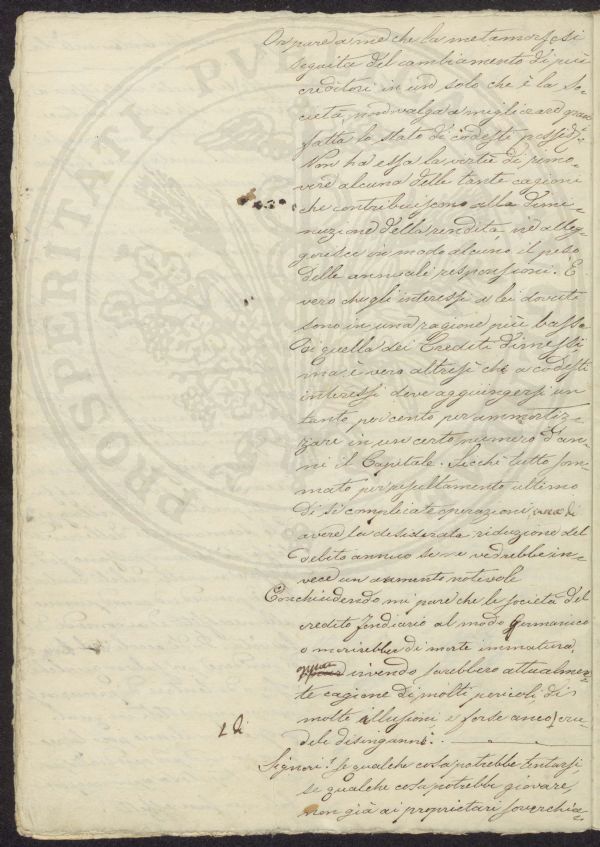 Or pare a me che la metamorfosi
seguita del cambiamento di più
creditori in un solo che è la So-
cietà, non valga a migliorare gran
fatta lo stato di codesti possid.ti
Non ha essa la virtù di rimo-
vere alcuna delle tante cagioni
che contribuiscono alla dimi-
nuzione della rendita, nè alleg-
gerisce in modo alcuno il peso
delle annuali responsioni. È
vero che gli interessi a lei dovuti
sono in una ragione più bassa
di quella dei Crediti dimessi
ma è vero altresì che a codesti
interessi deve aggiungersi un
tanto per cento per ammortiz-
zare in un certo numero d'an-
ni il Capitale. Sicchè tutto som-
mato per resultamento ultimo
di sì complicate operazioni di
avere la desiderata riduzione del
debito annuo se ne vedrebbe in-
vece un aumento notevole
Conchiudendo mi pare che le società del
credito fondiario al modo Germanico
o morirebber di morte immatura,
oppur vivendo sarebbero attualmen-
te cagione di molti pericoli, di
molte illusioni e forse anco cru-
deli disinganni.
Signori! se qualche cosa potrebbe tentarsi,
se qualche cosa potrebbe giovare,
non già ai proprietari soverchia-
PROSPERITATI